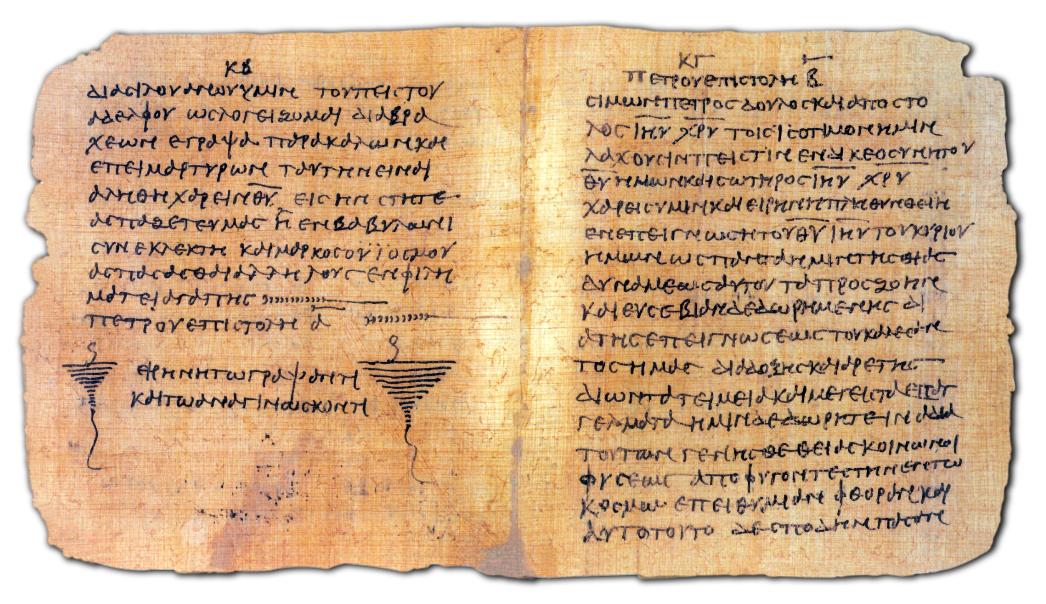 ΚΒ
ΔΙΑ ϹΙΛΟΥΑΝΟΥ ΥΜΙΝ ΤΟΥ ΠΕΙϹΤΟΥ
ΑΔΕΛΦΟΥ ΩϹ ΛΟΓΕΙΖΟΜΑΙ ΔΙΑ ΒΡΑ
ΧΕΩΝ ΕΓΡΑΨΑ ΠΑΡΑΚΑΛΩΝ ΚΑΙ
ΕΠΕΙΜΑΡΤΥΡΩΝ ΤΑΥΤΗΝ ΕΙΝΑΙ
ΑΛΗΘΗ ΧΑΡΕΙΝ Θ̅Υ̅ ΕΙϹ ΗΝ ϹΤΗΤΕ
ΑϹΠΑΖΕΤΕ ΥΜΑϹ Η ΕΝ ΒΑΒΥΛΩΝΙ
ϹΥΝΕΚΛΕΚΤΗ ΚΑΙ ΜΑΡΚΟϹ Ο ΥΪΟϹ ΜΟΥ
ΑϹΠΑϹΑϹΘΑΙ ΑΛΛΗΛΟΥϹ ΕΝ ΦΙΛΗ
ΜΑΤΕΙ ΑΓΑΠΗϹ
ΠΕΤΡΟΥ ΕΠΙϹΤΟΛΗ Α̅
ΕΙΡΗΝΗ ΤΩ ΓΡΑΨΑΝΤΙ
ΚΑΙ ΤΩ ΑΝΑΓΙΝΩϹΚΟΝΤΙ
ΚΓ
ΠΕΤΡΟΥ ΕΠΙϹΤΟΛΗ Β̅
ϹΙΜΩΝ ΠΕΤΡΟϹ ΔΟΥΛΟϹ ΚΑΙ ΑΠΟϹΤΟ
ΛΟϹ Ι̅Η̅Υ̅ Χ̅Ρ̅Υ̅ ΤΟΙϹ ΙϹΟΤΙΜΟΝ ΗΜΙΝ
ΛΑΧΟΥϹΙΝ ΠΕΙϹΤΙΝ ΕΝ ΔΙΚΕΟϹΥΝΗ ΤΟΥ
Θ̅Υ̅ ΗΜΩΝ ΚΑΙ ϹΩΤΗΡΟϹ Ι̅Η̅Υ̅ Χ̅Ρ̅Υ̅
ΧΑΡΕΙϹ ΥΜΙΝ ΚΑΙ ΕΙΡΗΝΗ ΠΛΗΘΥΝΘΕΙΗ
ΕΝ ΕΠΕΙΓΝΩϹΗ ΤΟΥ Θ̅Υ̅ Ι̅Η̅Υ̅ ΤΟΥ ΚΥΡΙΟΥ
ΗΜΩΝ ΩϹ ΠΑΝΤΑ ΗΜΙΝ ΤΗϹ ΘΙΑϹ
ΔΥΝΑΜΕΩϹ ΑΥΤΟΥ ΤΑ ΠΡΟϹ ΖΩΗΝ
ΚΑΙ ΕΥϹΕΒΙΑΝ ΔΕΔΩΡΗΜΕΝΗϹ ΔΙ
Α ΤΗϹ ΕΠΕΙΓΝΩϹΕΩϹ ΤΟΥ ΚΑΛΕϹΑΝ
ΤΟϹ ΗΜΑϹ ΔΙΑ ΔΟΞΗϹ ΚΑΙ ΑΡΕΤΗϹ
ΔΙ ΩΝ ΤΑ ΤΕΙΜΕΙΑ ΚΑΙ ΜΕΓΕΙϹΤΑ ΕΠΑΓ
ΓΕΛΜΑΤΑ ΗΜΙΝ ΔΕΔΩΡΗΤΕ ΙΝΑ ΔΙΑ
ΤΟΥΤΩΝ ΓΕΝΗϹΘΕ ΘΕΙΑϹ ΚΟΙΝΩΝΟΙ
ΦΥϹΕΩϹ ΑΠΟΦΥΓΟΝΤΕϹ ΤΗΝ ΕΝ ΤΩ
ΚΟϹΜΩ ΕΠΕΙΘΥΜΙΑΝ ΦΘΟΡΑΝ ΚΑΙ
ΑΥΤΟ ΤΟΥΤΟ ΔΕ ϹΠΟΔΗΝ ΠΑϹΑΝ